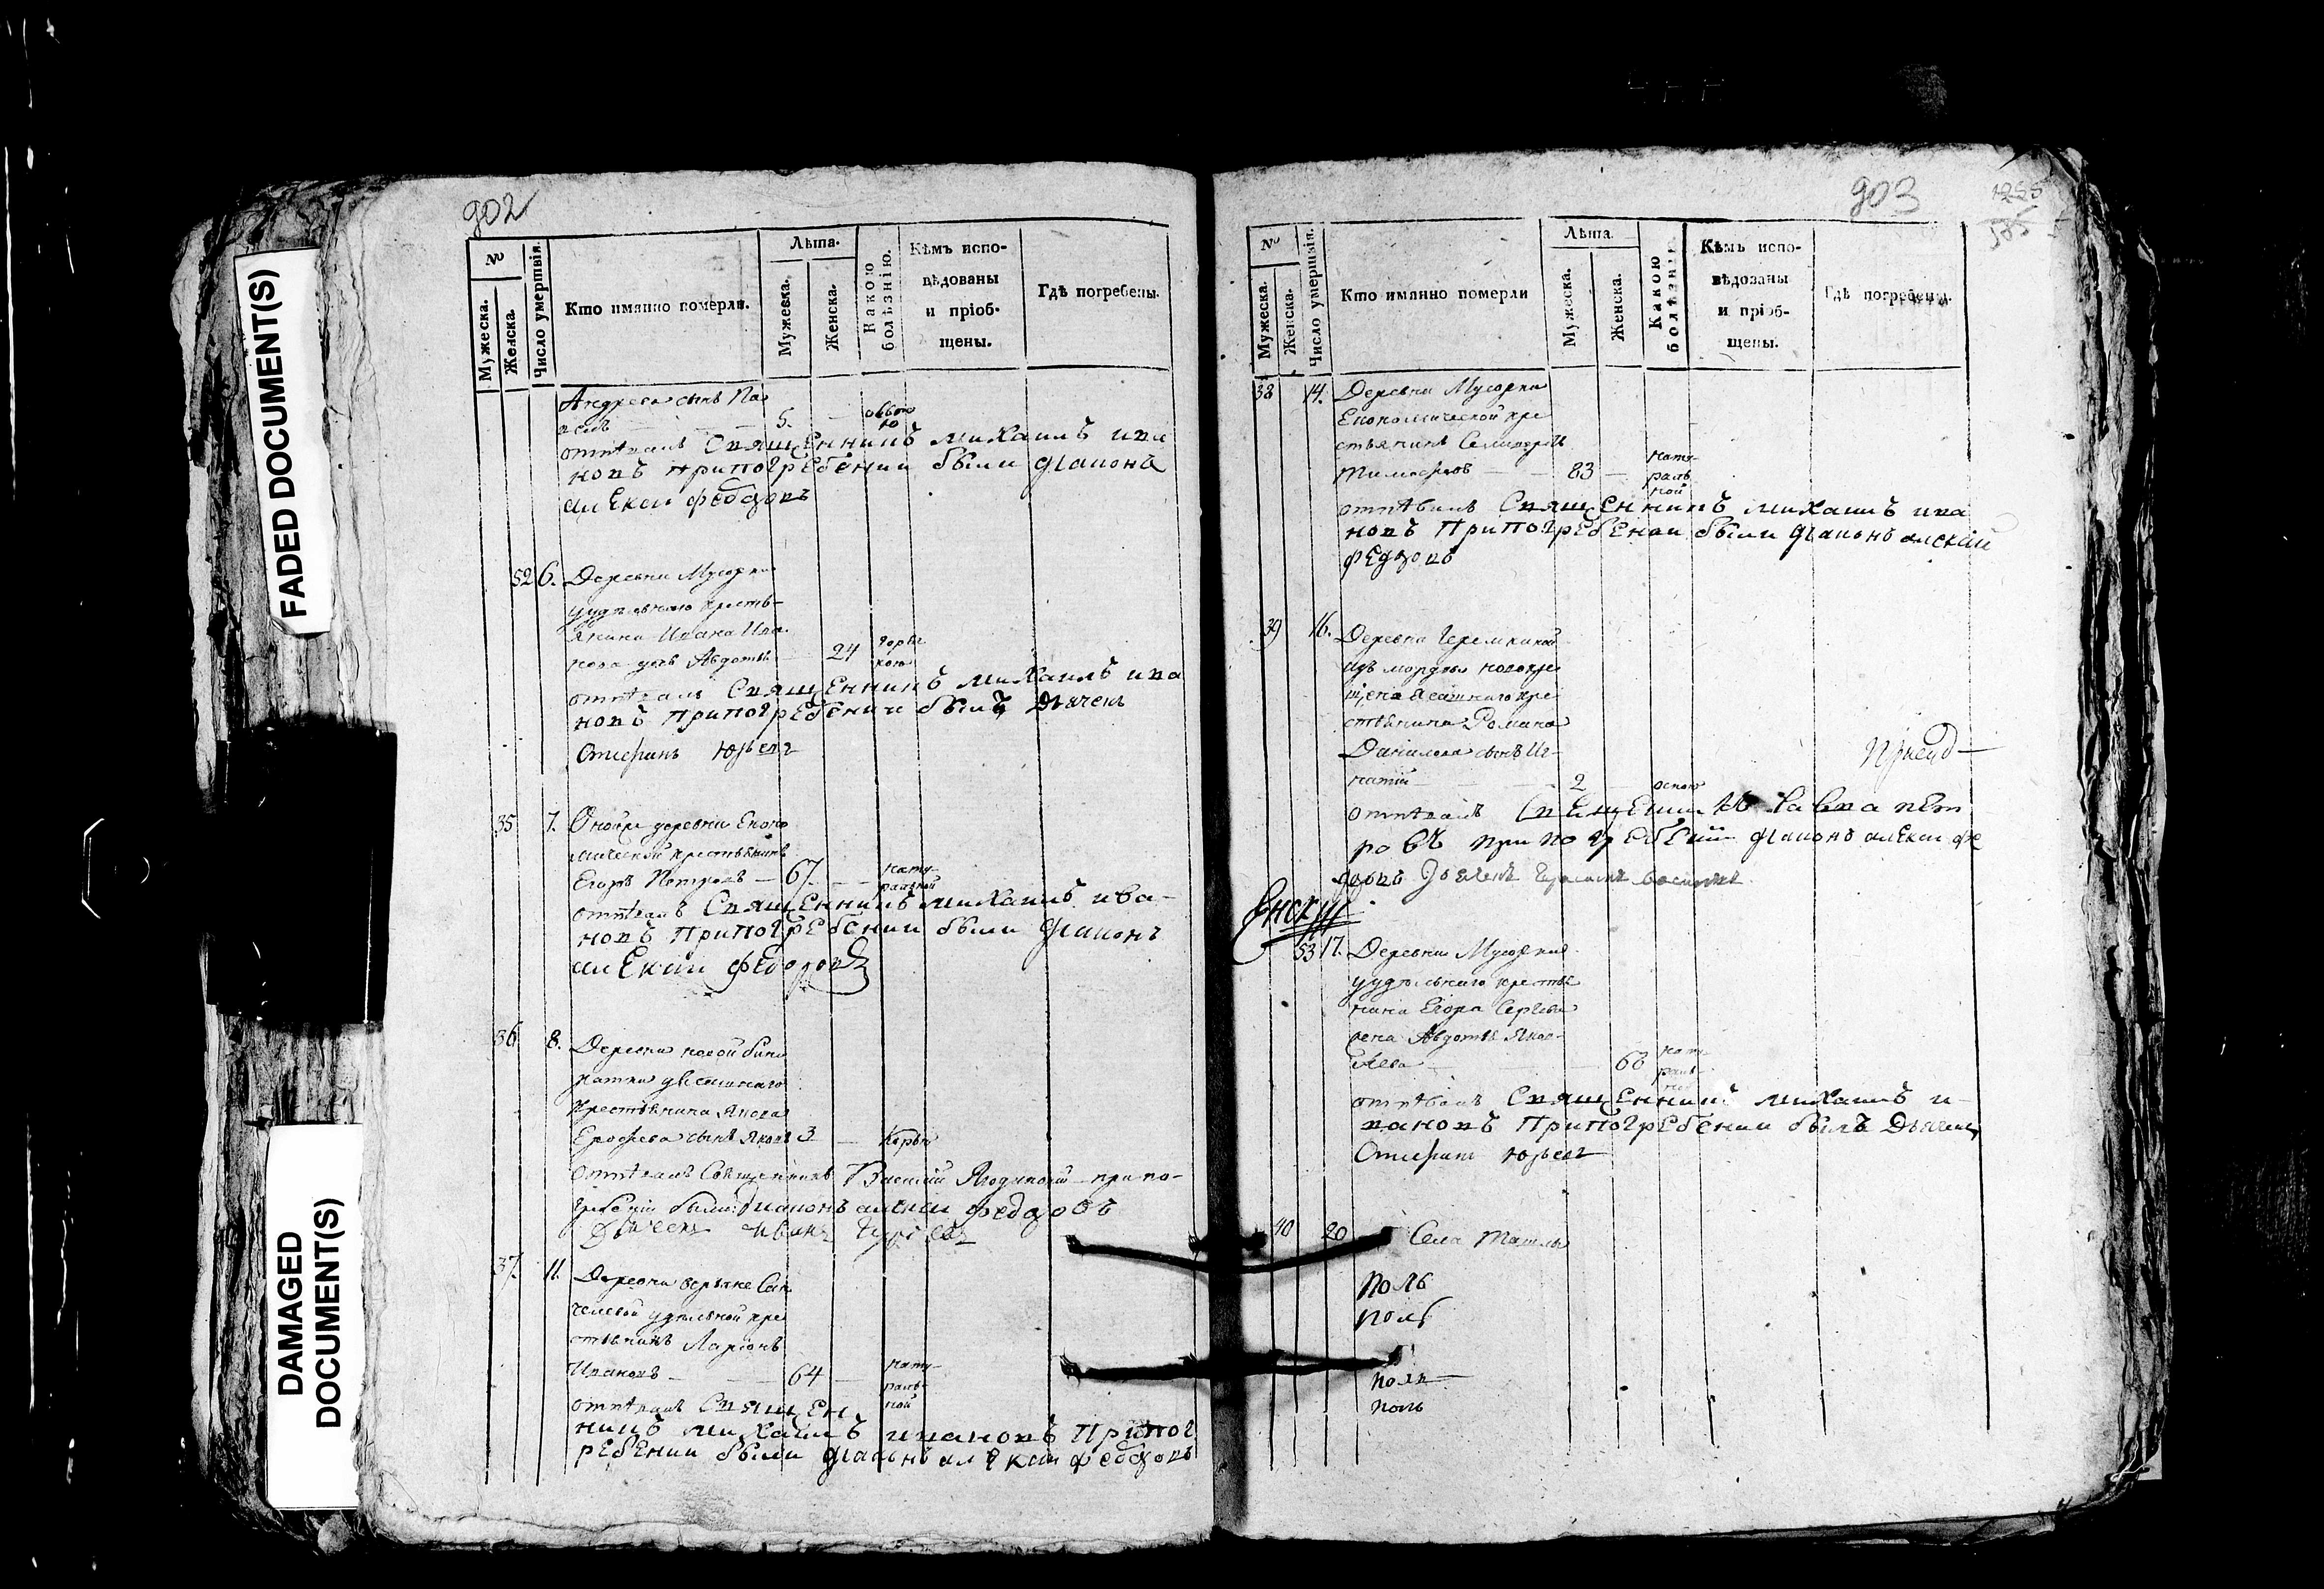 FADED DOCUMENT(S)
DAMAGED
DOCUMENT(S)
902
№
Мужеска.
Женска.
Число умертвія.
Кто имянно померли.
Лѣта.
Мужеска.
Женска.
Какою
болѣзнію.
Кѣмъ испо-
вѣдованы
и пріоб-
щены.
Гдѣ погребены.
Андреева сынъ
5.
отпѣвалъ Священникъ михаилъ ива
новъ При погребении были діаконъ
алекѣи федоровъ
52 6. Деревни Мусорки
удѣльнаго кресть-
янина Ивана Ива
нова дочь Авдотья 24 горяч
кою
отпѣвалъ Священникъ михаилъ ива
новъ при погребении былъ Дьячекъ
Юрьевъ
35 7. Оной же деревни Економ
мической крестьянинъ
Егоръ Петровъ — 67. — нату
ральной
отпѣвалъ Священникъ михаилъ ива-
новъ При погребении были Діаконъ
алекѣи федоровъ
36 8. Деревни новой Бина
радки ясашнаго
крестьянина Якова
Ерофеева сынъ Яковъ 3 — Корью
отпѣвалъ Священникъ Василий Ягодинской при по-
гребеніи были Диаконъ алексѣи федоровъ
Дьячекъ иванъ
37. 11. Деревни верхне Сан
челеевой удѣльной кре
стьянинъ Ларіонъ
Ивановъ — 64 — нату-
раль-
ной
отпѣвалъ Священ
никъ михаилъ ивановъ При пог
ребении были діаконъ алекѣи федоровъ
903
№
Мужеска.
Женска.
Число умертвія.
Кто имянно померли
Лѣта.
Мужеска.
Женска.
Какою
болѣзнію.
Кѣмъ испо-
вѣдованы
и пріоб-
щены.
Гдѣ погребены.
38 14. Деревни Мусорки
Економической кре
стьянинъ
Тимофеевъ — 83 — нату-
раль
ной
отпѣвалъ Священникъ михаилъ ива
новъ При погребении были діаконъ алекѣй
федоровъ
39 16. Деревни Черемкиной
изъ мордвы новокре
щена ясашнаго кре
стьянина Романа
Данилова сынъ Иг-
натій — 2 оспою
отпѣвалъ Священникъ савва пет
ровъ при погребеніи діаконъ алекѣи фе
доровъ
53 17. Деревни Мусорки
удѣльнаго крестья
нина Егора Сергѣева
жена Авдотья Яков-
лева — 60 нату-
раль-
ной
отпѣвалъ Священникъ михаилъ и-
вановъ При погребении былъ Дьячекъ
Юрьевъ
40 20 Села Ташлы